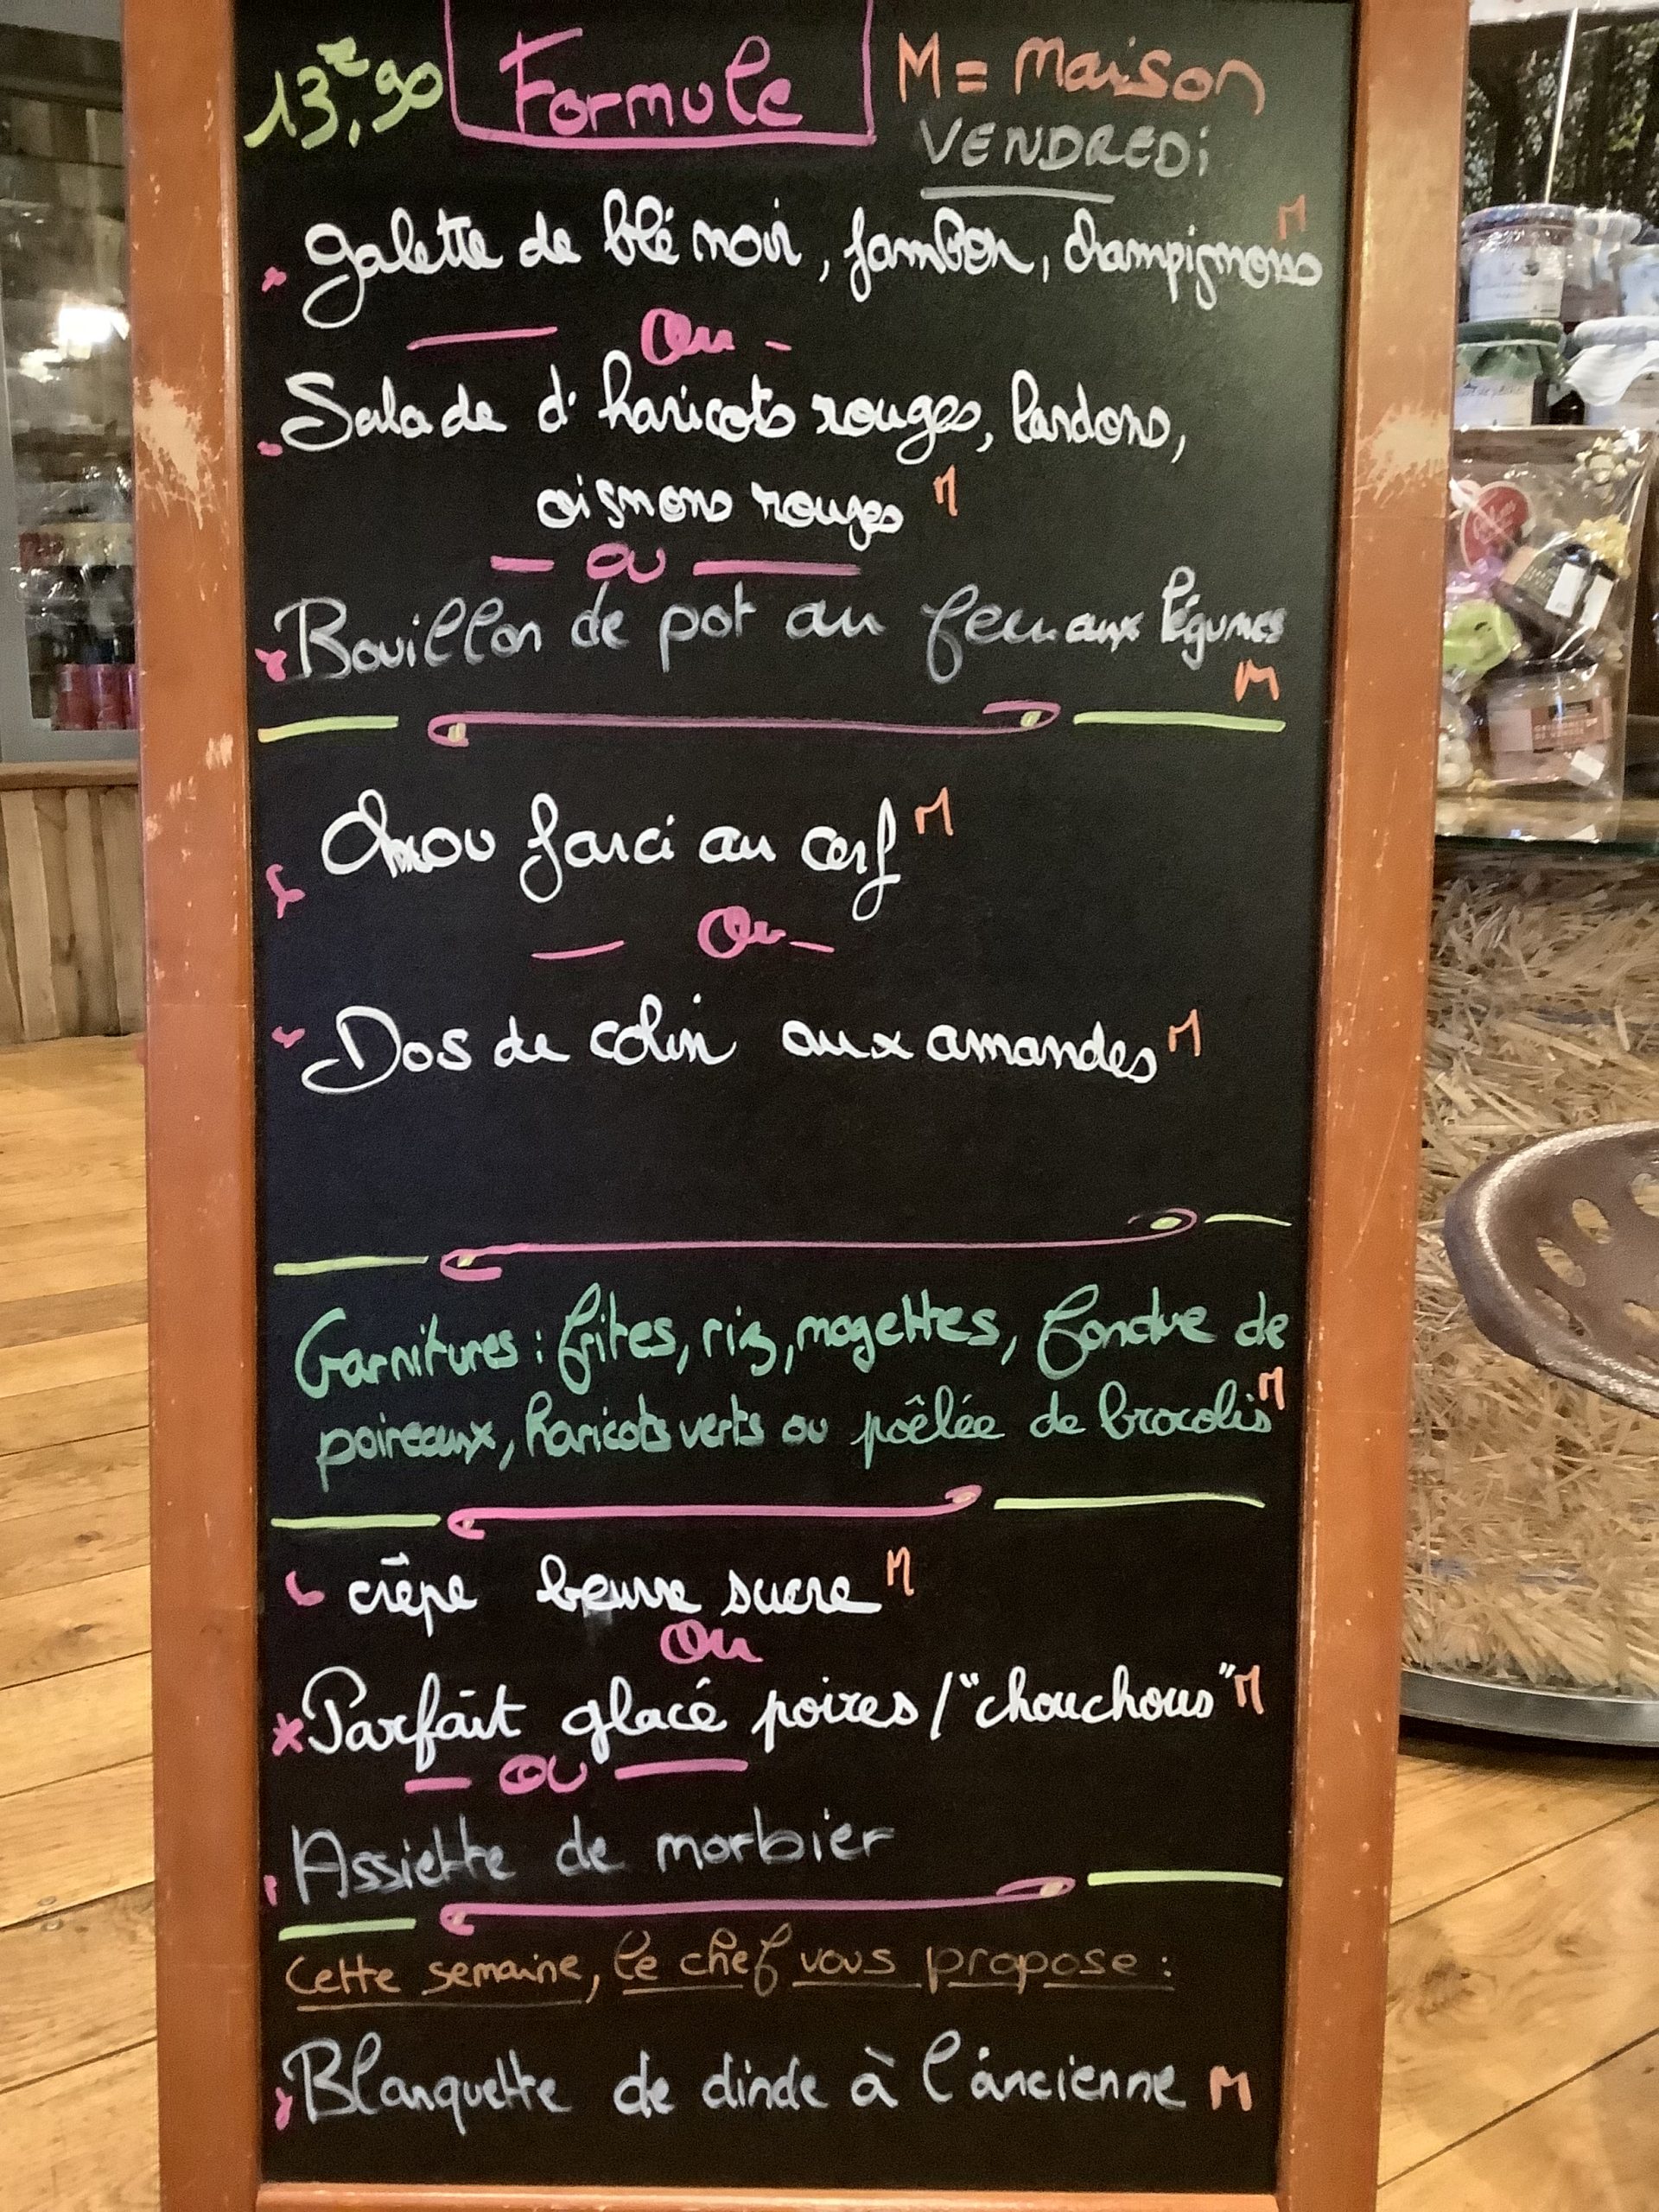 13€,90 Formule M = Maison
VENDREDi
Galette de blé noir, jambon, champignons M
Ou
Salade d'haricots rouges, lardons,
oignons rouges M
ou
Bouillon de pot au feu aux légumes
M
Chou farci au cerf M
Ou
Dos de colin aux amandes M
Garnitures : frites, riz, mogettes, fondue de
poireaux, haricots verts ou poêlée de brocolis M
crêpe beurre sucre M
Ou
Parfait glacé poires / "chouchous" M
ou
Assiette de morbier
Cette semaine, le chef vous propose :
Blanquette de dinde à l'ancienne M